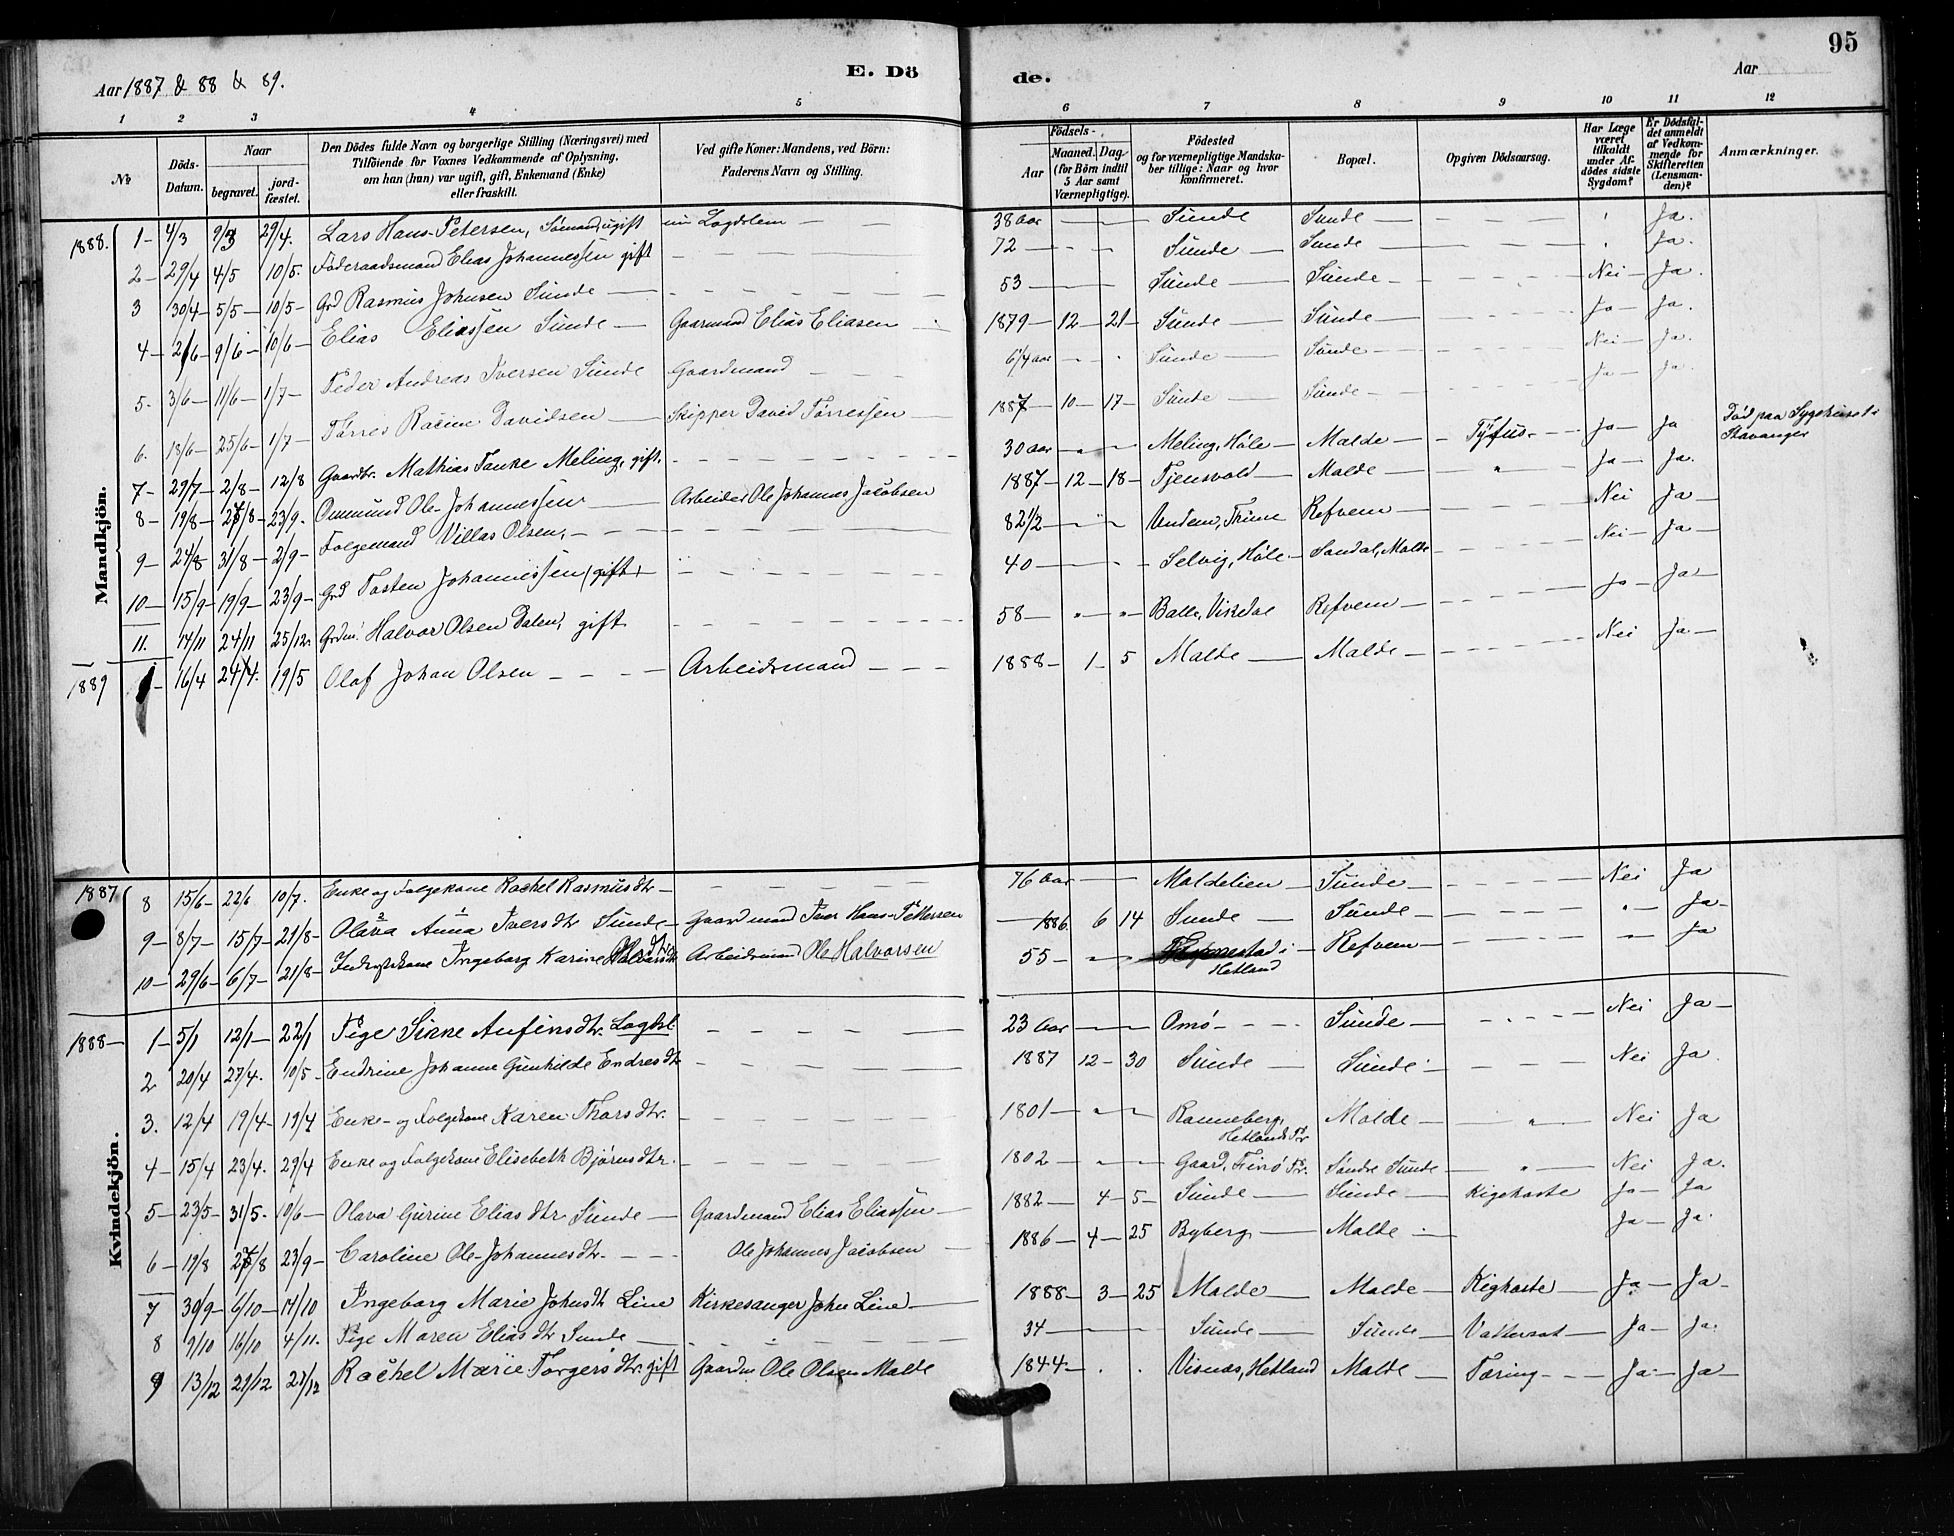 95
Aar 1887 & 88 & 89.
E. Dö
de.
Aar
1 2 3 4 5 6 7 8 9 10 11 12
No
Döds-Datum.
Naar
begravet.
jord-fæstet.
Den Dödes fulde Navn og borgerlige Stilling (Næringsvei) med
Tilföiende for Voxnes Vedkommende af Oplysning,
om han (hun) var ugift, gift, Enkemand (Enke)
eller fraskilt.
Ved gifte Koner: Mandens, ved Börn:
Faderens Navn og Stilling.
Födsels-
Aar
Maaned. Dag
(for Börn indtil
5 Aar samt
Værnepligtige).
Födested
og for værnepligtige Mandska-
ber tillige: Naar og hvor
konfirmeret.
Bopæl.
Opgiven Dödsaarsag.
Har Læge
været
tilkaldt
under Af-
dödes sidste
Sygdom?
Er Dödsfal-
det anmeldt
af Vedkom-
mende for
Skifteretten
(Lensman-
den)?
Anmærkninger.
Mandkjön.
1888. 1 - 4/3 9/3 29/4. Lars Hans Petersen, Sömand, ugift — — 38 aar — — Sunde Sunde Ja.
2 - 29/4 4/5 10/5. Föderaadsmand Elias Johannessen gift — — — 72 — Sunde — Sunde — Ja.
3 30/4 - 5/5 - 10/5 - Grd Rasmus Johnsen Sunde — — — 53 — Sunde — Sunde — — — Nei — Ja.
4 - 2/6 - 9/6 - 10/6 - Elias Eliassen Sunde — Gaarmand Elias Eliasen 1879 - 12 - 21 - Sunde — Sunde — — — Ja — Ja.
5. 3/6 - 11/6 - 1/7 - Peder Andreas Iversen Sunde Gaardmand — — 6 1/4 aar Sunde — Sunde — — — Nei — Ja.
6. 18/6 - 25/6 - 1/7 - Törres Racine Davidsen — Skipper David Törressen — 1887 - 10 - 17 - Sunde — Sunde — — — Ja — Ja.
7 - 29/7 - 2/8 - 12/8 Gaardbr. Mathias Tanke Meling, gift. — — — 30 aar Meling, Höle — Malde — Tyfus - Ja — Ja Död paa Sygehuset i
Stavanger
8 - 19/8 - 27/8 - 23/9. Ommund Ole Johannessen — Arbeider Ole Johannes Jacobsen 1887 - 12 - 18 - Tjensvold — Malde — " Ja — Ja.
9 - 24/8 - 31/8 - 2/9 - Folgemand Villas Olsen, — — — 82 1/2 Undem, Thime Refvem — — — Nei Ja —
10 - 15/9 - 19/9 - 23/9 - Grd Tosten Johannessen (gift) — — — 40 — Selvig, Höle — Sandal, Malde — — — Nei — Ja —
11. 14/11 24/11 25/12. Grdm. Halvor Olsen Dalen, gift — — — 58 — Balle, Vikedal Refvem — — — Ja — Ja —
1889 1 - 16/4 24/4. 19/5 Olaf Johan Olsen — — — Arbeidsmand — — — 1888 - 1 - 5 Malde — Malde — — — Nei Ja —
Kvindekjön.
1887 8 15/6 - 22/6 10/7. Enke og Folgekone Rachel Rasmusdtr — — — 76 Aar — Maldelien — Sunde — — — Nei Ja
9 - 8/7 - 15/7 - 21/8 - Olava 2 Anna 1 Iversdtr Sunde — Gaardmand Iver Hans Pettersen 1886 6 14 Sunde — Sunde — — — " Ja —
10 - 29/6 - 6/7 - 21/8 - Ingeborg Karine Arbeidsmand Ole Halvorsen 55 - i
Hetland Refvem — — — " Ja
1888 - 1 - 5/1 12/1 - 22/1 Pige Sirine Aufinsdtr. — — — 23 Aar — Omö — — Sunde — — — Nei Ja —
2 20/4 27/4. 10/5 - Endrine Johanne Gunhilde Endresdtr — — — 1887 12 - 30 Sunde Sunde — — — Nei Ja.
3. 12/4 19/4 - 19/4 Enke- og Folgekone Karen Thorsdtr. — — — 1801 — Ranneberg,
Hetlands Pr Malde — " Nei Ja
4 - 15/4 23/4. 29/4 Enke og Folgekone Elisebeth Björnsdtr. — — — 1802 — Gaard, Finö Pr. Söndre Sunde — " Nei Ja.
5 - 23/5 - 31/5. 10/6 - Olava Gurine Eliasdtr Sunde — Gaardmand Elias Eliassen — 1882 - 4 - 5 - Sunde — Sunde — Kigehoste Ja — Ja
6 - 19/8 27/8 23/9 - Caroline Ole-Johannesdtr. — — — Ole Johannes Jacobsen — 1886 - 4 - 25 Byberg, — Malde — Ja — Ja.
7 30/9 - 6/10 - 14/10 Ingeborg Marie Johnsdtr Line Kirkesanger John Line — 1888 - 3 - 25 Malde — Malde — Kighoste — Ja — Ja —
8 9/10 16/10 4/11. Pige Maren Eliasdtr Sunde — — — 34 — Sunde — Sunde — Vattersot — Ja — Ja.
9 13/12 21/12 21/12 Rachel Marie Torgersdtr. gift Gaardm Ole Olsen Malde 1844 - Visnæs, Hetland Malde — Tæring — — Ja — Ja —